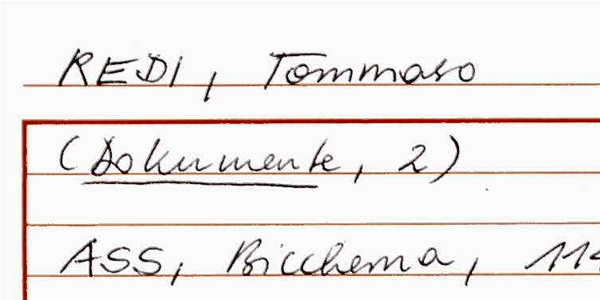 REDI, Tommaso
(Dokumente, 2)
ASS, Biccherna, 114